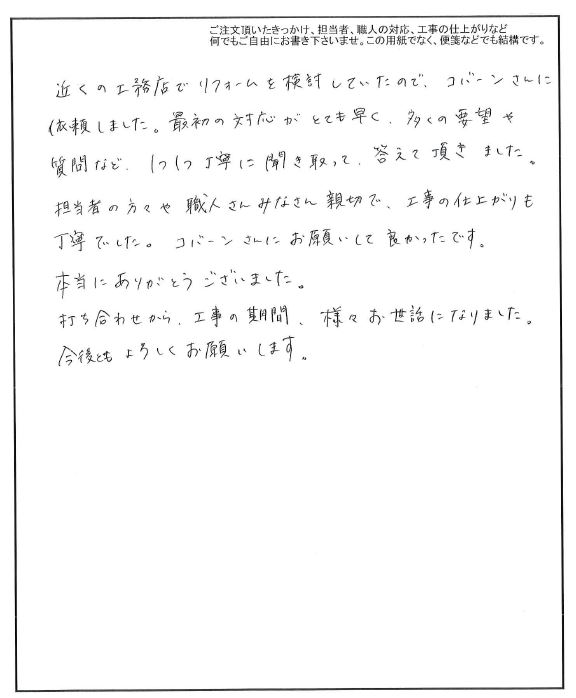 ご注文頂いたきっかけ、担当者、職人の対応、工事の仕上がりなど
何でもご自由にお書き下さいませ。この用紙でなく、便箋などでも結構です。
近くの工務店でリフォームを検討していたので、コバーンさんに
依頼しました。最初の対応がとても早く、多くの要望や
質問など、1つ1つ丁寧に聞き取って、答えて頂きました。
担当者の方々や職人さんみなさん親切で、工事の仕上がりも
丁寧でした。コバーンさんにお願いして良かったです。
本当にありがとうございました。
打ち合わせから、工事の期間、様々お世話になりました。
今後ともよろしくお願いします。